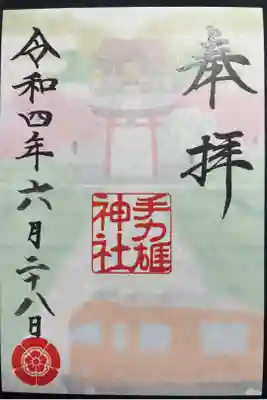 奉拝
手力雄
神社
令和四年六月二十八日